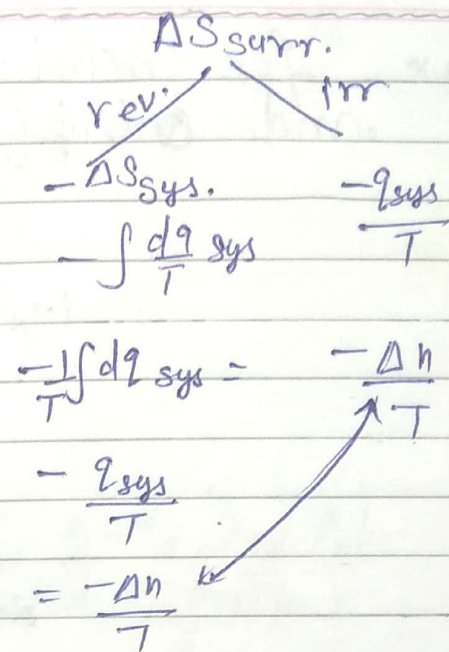 ΔSsurr.
rev. irr
-ΔSsys. -qsys/T
-∫ dq/T sys
-1/T ∫dq sys = -Δh/T
- qsys/T
= -Δh/T